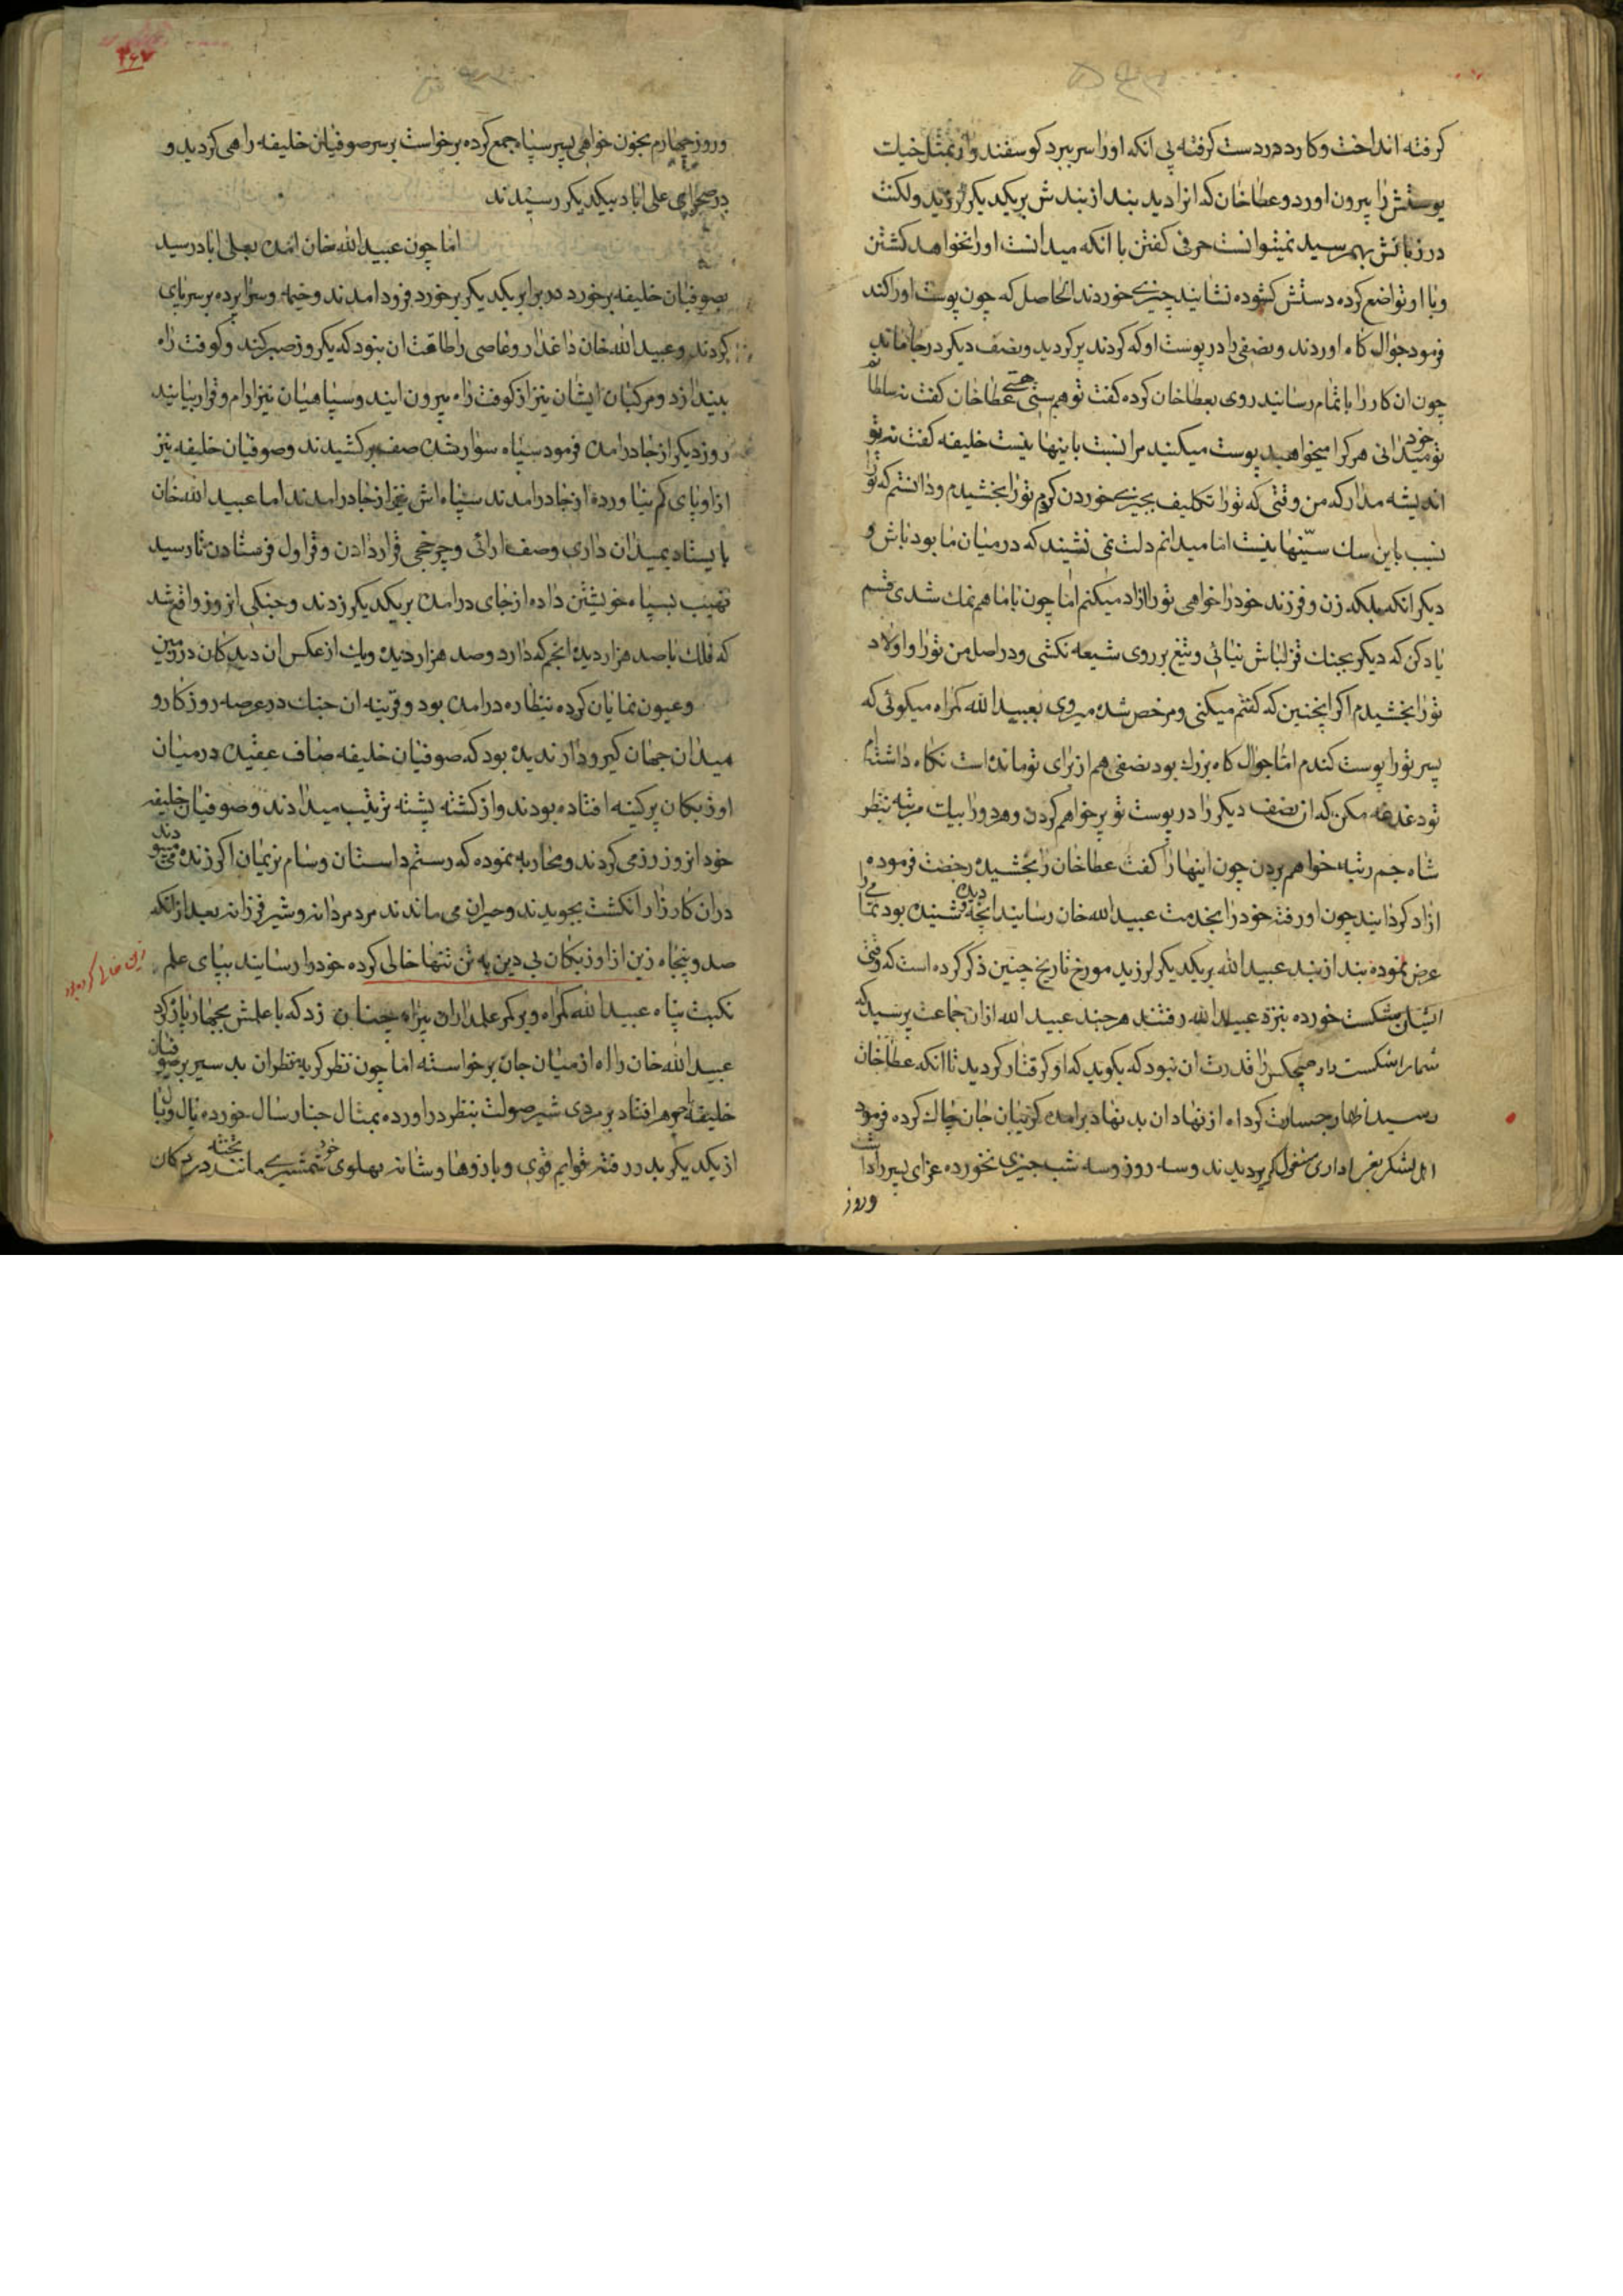 كرفته انداخت وكارد در دست كرفته بی انكه اورا سر ببرد كوسفند وار بمثل خيات
پوستش را بیرون اورد و عطاخان كه انرا دید بند از بندش بریكدیكر لرزید ولكنت
در زبانش بهم رسید نمیتوانست حرفی كفتن با انكه میدانست اورا نخواهد كشتن
وبا او تواضع كرده دستش كشوده نشانید چیزی خوردند الحاصل كه چون پوست اورا كند
فرمود جوال كاه اوردند ونصفی را در پوست او كه كردند پر كردید ونصف دیكر در جا ماند
چون ان كار را باتمام رسانید روی بعطاخان كرده كفت تو هم سنی هستی عطاخان كفت نه سلطانم
تو خود میدانی هركرا میخواهید پوست میكنید مرا نسبت باینها نیست خلیفه كفت نه تو
اندیشه مدار كه من وقتی كه تورا تكلیف بچیزی خوردن كردم تورا بخشیدم ودانستم كه تورا
نسب باین سك سنیها نیست اما میدانم دلت نمی نشیند كه در میان ما بود باش و
دیكر انكه بلكه زن وفرزند خودرا خواهی تورا ازاد میكنم اما چون باما هم نمك شدی قسم
یاد كن كه دیكر بجنك قزلباش نیائی وتیغ بر روی شیعه نكشی ودر اصل من تورا واولاد
تورا بخشیدم اكر اینچنین كه كفتم میكنی ومرخص شده میروی بعبید الله كمراه میكوئی كه
پسر تورا پوست كندم اما جوال كاه بزرك بود نصفی هم از برای تو مانده است نكاه داشته‌ام
تو دغدغه مكن كه ان نصف دیكر را در پوست تو پر خواهم كردن وهر دورا بیك مرتبه بنظر
شاه جم رتبه خواهم بردن چون اینها را كفت عطاخان را بخشیده رخصت فرموده
ازاد كردانید چون او رفته خودرا بخدمت عبید الله خان رسانید انچه دیده وشنیده بود تمامی را
عرض نموده بند از بند عبید الله بریكدیكر لرزید مورخ تاریخ چنین ذكر كرده است كه وقتی
ایشان شكست خورده بنزد عبید الله رفتند هرچند عبید الله ازان جماعت پرسید كه
شمارا شكست داد هیچكس را قدرت ان نبود كه بكوید كه او كرفتار كردید تا انكه عطاخان
رسید اظهار جسارت كرد اه از نهاد ان بد نهاد برامده كریبان جان چاك كرده فرمود
اهل لشكر بعزاداری مشغول كردیدند وسه روز وسه شب چیزی نخورده عزای پسر را داشت
وروز
۳۶۷
وروز چهارم بخون خواهی پسر سپاه جمع كرده برخواست بر سر صوفیان خلیفه راهی كردید و
در صحرای علی اباد بیكدیكر رسیدند
اما چون عبید الله خان امده بعلی اباد رسید
بصوفیان خلیفه برخورد در برابر یكدیكر برخورد فرود امدند وخیمه وسراپرده بر سر پای
كردند وعبید الله خان داغدار وعاصی را طاقت ان نبود كه یكروز صبر كند وكوفت راه
بیندازد ومركبان ایشان نیز از كوفت راه بیرون ایند وسپاهیان نیز ارام وقرار بیابند
روز دیكر از جا درامده فرمود سپاه سوار شده صف بركشیدند وصوفیان خلیفه نیز
از او پای كم نیاورده از جا درامدند سپاه اش نیز از جا درامدند اما عبید الله خان
بایستاد بمیدان داری وصف ارائی وچرخچی قرار دادن وقراول فرستادن تا رسید
نهیب بسپاه خویشتن داده از جای درامده بریكدیكر زدند وجنكی انروز واقع شد
كه فلك با صد هزار دیده انجم كه دارد وصد هزار دیده ویك از عكس ان دیدكان در زمین
وعیون نمایان كرده بنظاره درامده بود وقرینه ان جنك در عرصه روزكار و
میدان جهان كیرودار ندیده بود كه صوفیان خلیفه صاف عقیده در میان
اوزبكان پر كینه افتاده بودند واز كشته پشته ترتیب میدادند وصوفیان خلیفه
خود انروز رزمی كردند ومحاربه نموده كه رستم داستان وسام نریمان اكر زنده میبودند
دران كارزار انكشت بجویدند وحیران می ماندند مرد مردانه وشیر فرزانه بعد از انكه
صد وپنجاه زین از اوزبكان بی دین به تن تنها خالی كرده خودرا رسانید بپای علم
زین خالی كردن
نكبت پناه عبید الله كمراه وبر كمر علمداران بیراه چنان زد كه با علمش بچهار پاره كرد
عبید الله خان را اه از میان جان برخواسته اما چون نظر كربه نظران بد سیر بر صوفیان
خلیفه جوهر افتاد برمردی شیر صولت بنظر دراورده بمثال چنار سال خورده یال وبال
از یكدیكر بدر رفته قوایم قوی وبازوها وشانه پهلوی خود شمشیری مانند تخته در دكان